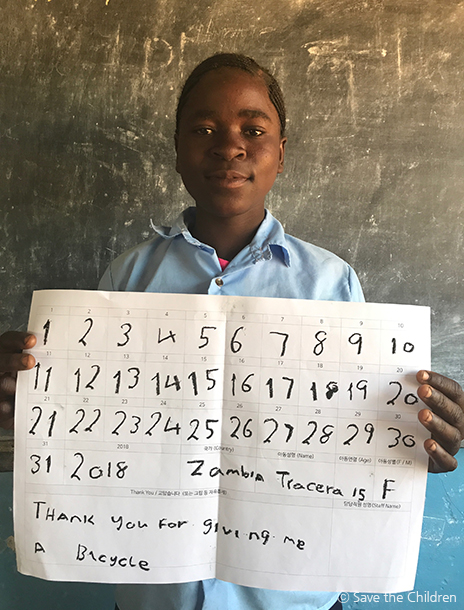 1 2 3 4 5 6 7 8 9 10
1 2 3 4 5 6 7 8 9 10
11 12 13 14 15 16 17 18 19 20
11 12 13 14 15 16 17 18 19 20
21 22 23 24 25 26 27 28 29 30
21 22 23 24 25 26 27 28 29 30
31 2018 국가 (Country) 아동성명 (Name) 아동연령 (Age) 아동성별(F / M)
31 2018 Zambia Tracera 15 F
Thank You / 고맙습니다 (Staff Name)
THANK You FOR giving me
A Bicycle
© Save the Children